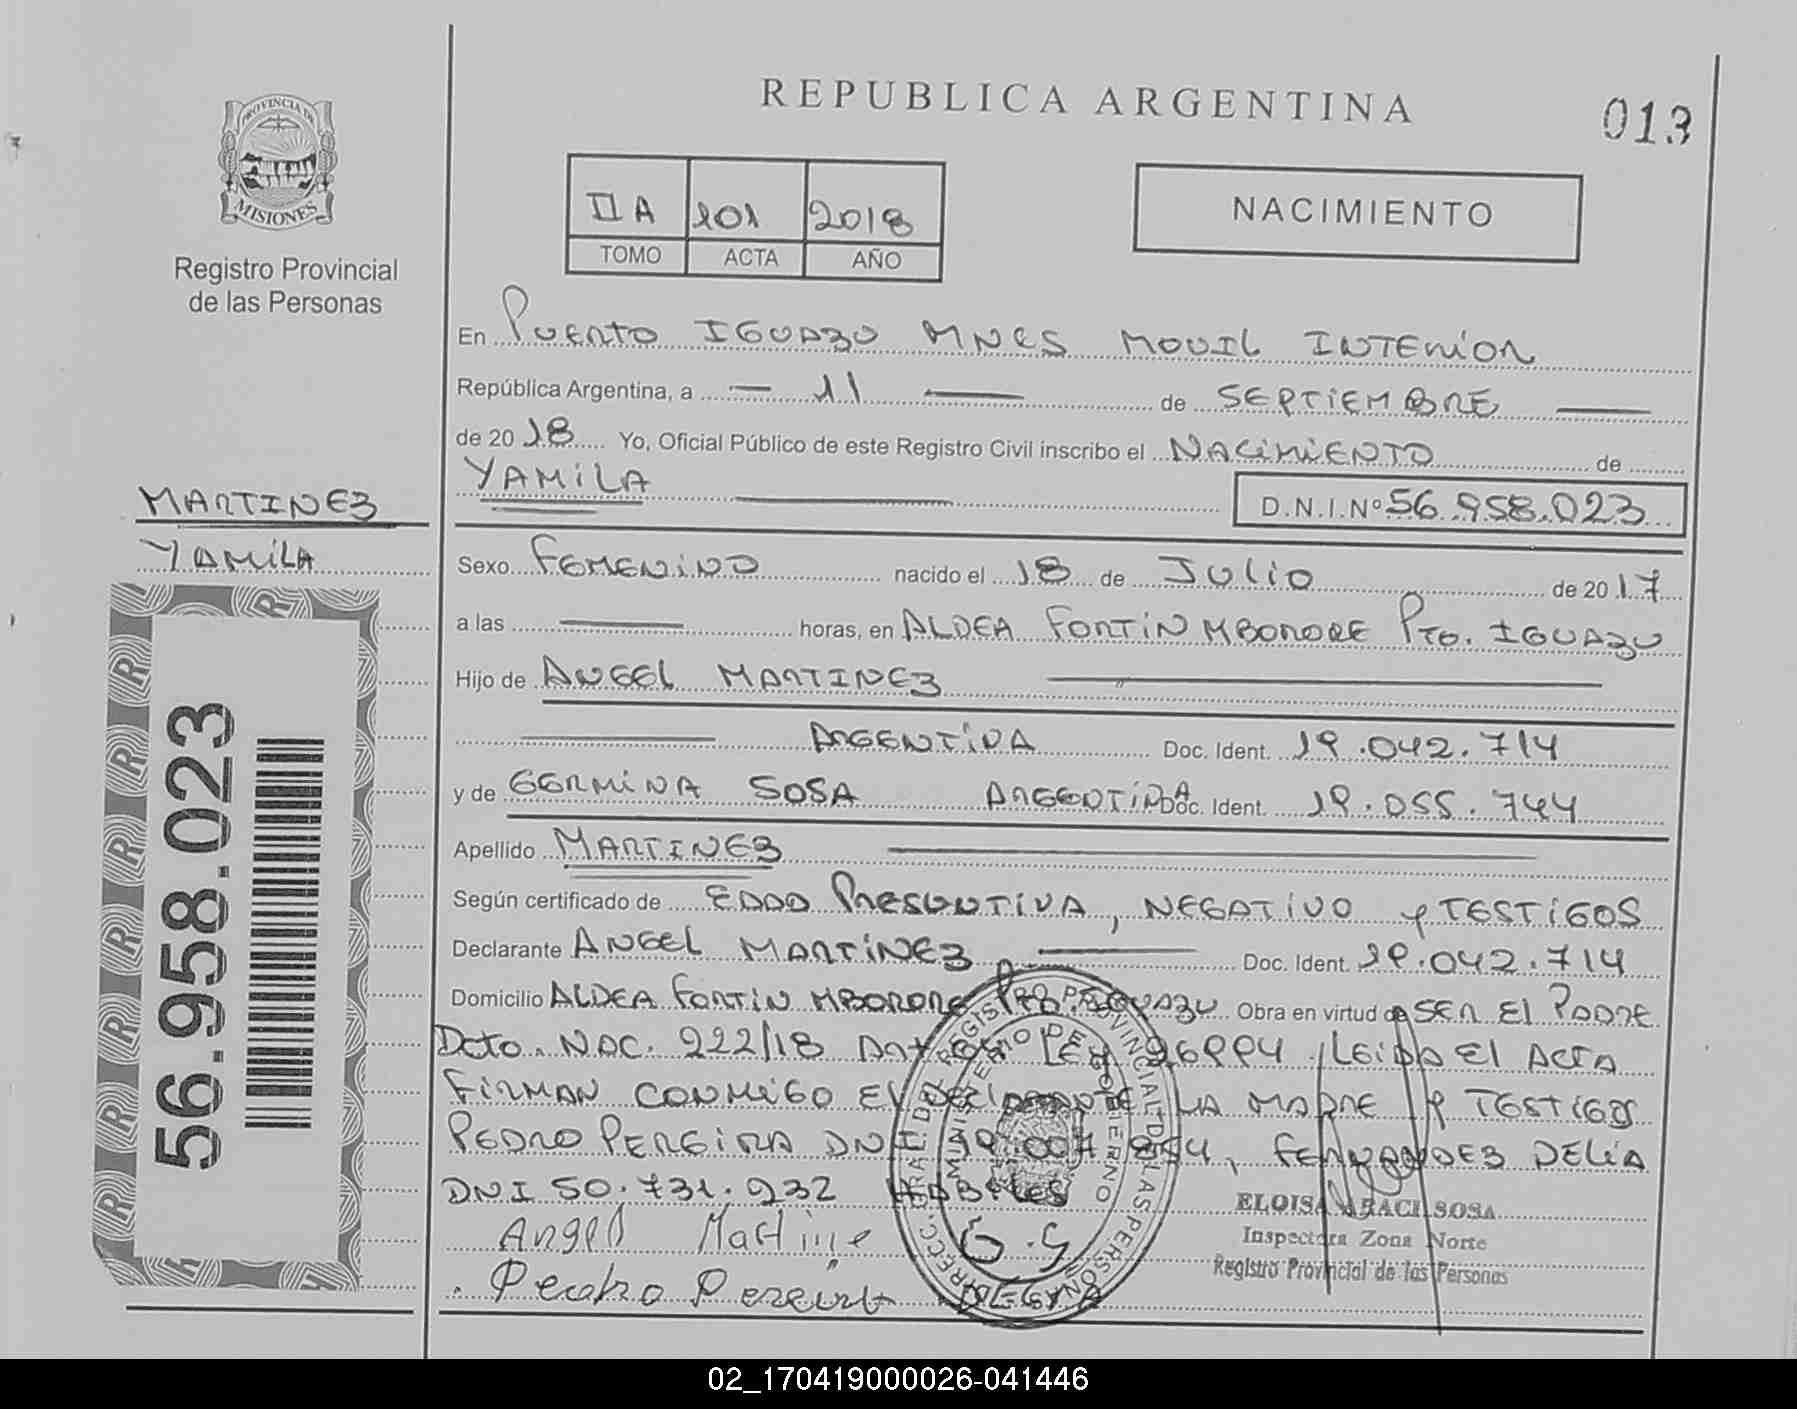 PROVINCIA DE
MISIONES
Registro Provincial
de las Personas
REPUBLICA ARGENTINA
013
II A 101 2018
TOMO ACTA AÑO
NACIMIENTO
En Puerto IGUAZU MNES MOVIL INTERIOR
República Argentina, a 11 de SEPTIEMBRE
de 2018 Yo, Oficial Público de este Registro Civil inscribo el NACIMIENTO de
YAMILA
D.N.I.Nº 56.958.023
MARTINEZ
YAMILA
Sexo FEMENINO nacido el 18 de JULIO de 2017
a las horas, en ALDEA FORTIN MBORORE Pto. IGUAZU
Hijo de ANGEL MARTINEZ
ARGENTINA Doc. Ident. 19.042.714
y de GERMINA SOSA ARGENTINA Doc. Ident. 19.055.744
Apellido MARTINEZ
Según certificado de EDAD PRESUNTIVA, NEGATIVO y TESTIGOS
Declarante ANGEL MARTINEZ Doc. Ident. 19.042.714
Domicilio ALDEA FORTIN MBORORE Pto. IGUAZU Obra en virtud de SER El PADRE
Dcto. NAC. 222/18 LEY 26994. LEIDA El ACTA
FIRMAN CONMIGO El DECLARANTE LA MADRE y TESTIGOS
PEDRO PEREIRA DNI 19.007.854, FERNANDEZ DELIA
DNI 50.731.232 HABILES
Angel Martine
G.S
Pedro Pereira
DELEGADA
DIRECC. GRAL. DEL REGISTRO PROVINCIAL DE LAS PERSONAS
MINISTERIO DE GOBIERNO
ELOISA ARACI SOSA
Inspectora Zona Norte
Registro Provincial de las Personas
56.958.023
02_170419000026-041446